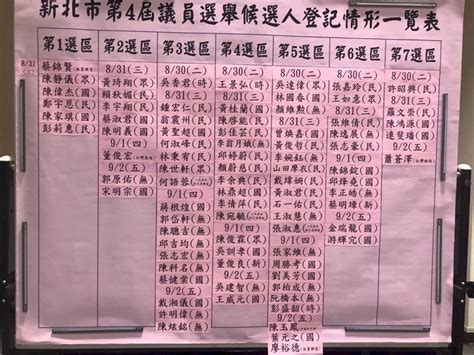 新北市第4屆議員選舉候選人登記情形一覽表
第1選區
8/31
蔡錦賢
陳偉杰(國)
鄭宇恩(民)
陳家琪(國)
彭莉惠(民)
第2選區
8/31(三)
黃琦翔(眾)
賴秋媚(民)
李宇翔(民)
蔡淑君(國)
陳明義(國)
9/1(四)
董俊宏
9/2(五)
郭原佑(無)
宋明宗(國)
第3選區
8/30(二)
吳香君(時)
8/31(三)
鍾宏仁(民)
翁震州(民)
黃聖超(國)
何淑峰(民)
林秉宥(民)
陳世軒(眾)
何語蓉
9/1(四)
蔣根煌(國)
郭岱軒(無)
陳聰吉(無)
邱吉均(無)
張志宏(無)
陳科名(無)
蔡健棠(國)
9/2(五)
戴湘儀(國)
許明偉(無)
陳炫銘(無)
第4選區
8/30(二)
王景弘(時)
8/31(三)
黃桂蘭(國)
陳啟能(民)
彭佳芸(民)
李坤城(民)
邱婷蔚(民)
顏蔚慈(民)
李余典(民)
李倩萍(民)
陳宛毓
9/1(四)
陳俊霖(眾)
董俊良(新)
9/2(五)
吳建智(無)
王威元(國)
第5選區
8/30(二)
吳達偉(眾)
林國春(國)
8/31(三)
曾煥嘉(國)
黃俊哲(國)
李婉鈺(無)
山田摩衣(民)
戴瑋姍(民)
石一佑(民)
王淑慧(民)
張淑惠
9/1(四)
張家維(無)
周勝考(國)
劉美芳(國)
郭柏成(無)
阮橋本(無)
彭盛韶(時)
9/2(五)
陳玉鳳
葉元之(國)
廖裕德
第6選區
8/30(二)
張嘉玲(民)
王如意(眾)
8/31(三)
張維倩(民)
陳逸展(無)
張志豪(民)
9/1(四)
陳錦錠(國)
邱烽堯(國)
9/2(五)
金瑞龍(國)
游輝宂(國)
第7選區
8/30(二)
許昭興(民)
8/31(三)
羅文崇(民)
陳鴻源(國)
連斐璠(國)
9/2(五)
蕭蒼澤